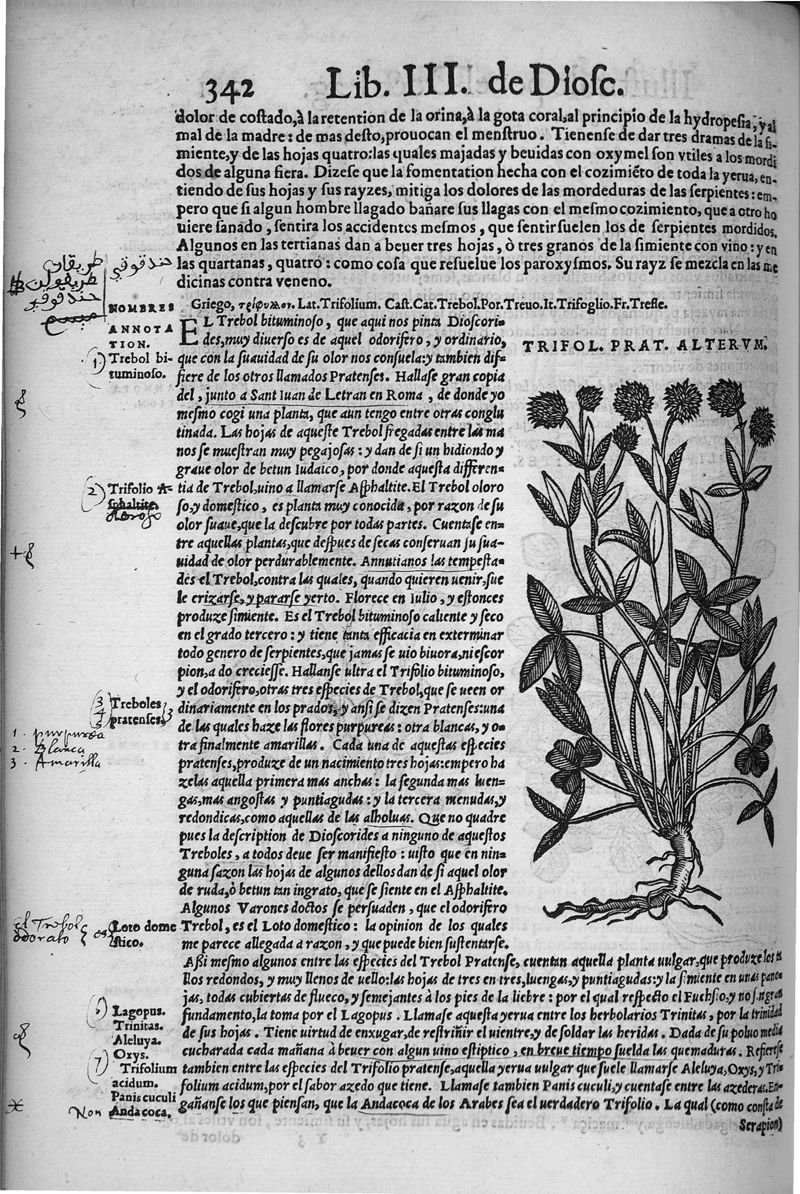 342 Lib. III. de Diosc.
dolor de costado, à la retention de la orina, à la gota coral, al principio de la hydropesia, y al
mal de la madre: de mas desto, prouocan el menstruo. Tienense de dar tres dramas de la si-
miente, y de las hojas quatro: las quales majadas y beuidas con oxymel son vtiles a los mordi
dos de alguna fiera. Dizese que la fomentation hecha con el cozimiẽto de toda la yerua, en-
tiendo de sus hojas y sus rayzes, mitiga los dolores de las mordeduras de las serpientes: em-
pero que si algun hombre llagado bañare sus llagas con el mesmo cozimiento, que a otro ho
uiere sanado, sentira los accidentes mesmos, que sentir suelen los de serpientes mordidos.
Algunos en las tertianas dan a beuer tres hojas, ò tres granos de la simiente con vino: y en
las quartanas, quatro: como cosa que resuelue los paroxysmos. Su rayz se mezcla en las me
dicinas contra veneno.
حندقوقي
طريفلن
حندقوقي
NOMBRES
Griego, τρίφυλλον. Lat. Trifolium. Cast. Cat. Trebol. Por. Treuo. It. Trifoglio. Fr. Trefle.
ANNOTA
TION.
1) Trebol bi-
tuminoso.
EL Trebol bituminoso, que aqui nos pinta Dioscori-
des, muy diuerso es de aquel odorifero, y ordinario,
que con la suauidad de su olor nos consuela: y tambien dif-
fiere de los otros llamados Pratenses. Hallase gran copia
del, junto a Sant Iuan de Letran en Roma, de donde yo
mesmo cogi una planta, que aun tengo entre otras conglu
tinada. Las hojas de aqueste Trebol fregadas entre las ma
nos se muestran muy pegajosas: y dan de si un hidiondo y
graue olor de betun Iudaico, por donde aquesta differen-
2) Trifolio A-
sphaltite.
oloroso
tia de Trebol, uino a llamarse Asphaltite. El Trebol oloro
so, y domestico, es planta muy conocida, por razon de su
olor suaue, que la descubre por todas partes. Cuentase en-
tre aquellas plantas, que despues de secas conseruan su sua-
uidad de olor perdurablemente. Annutianos las tempesta-
des el Trebol, contra las quales, quando quieren uenir, sue
le erizarse, y pararse yerto. Florece en Iulio, y estonces
produze simiente. Es el Trebol bituminoso caliente y seco
en el grado tercero: y tiene tanta efficacia en exterminar
todo genero de serpientes, que jamas se uio biuora, ni escor
pion, a do creciesse. Hallanse ultra el Trifolio bituminoso,
y el odorifero, otras tres especies de Trebol, que se ueen or
3
4
5
Treboles
pratenses.
dinariamente en los prados, y ansi se dizen Pratenses: una
de las quales haze las flores purpureas: otra blancas, y o-
tra finalmente amarillas. Cada una de aquestas especies
1 · purpurea
2 · Blanca
3 · Amarilla
pratenses, produze de un nacimiento tres hojas: empero ha
zelas aquella primera mas anchas: la segunda mas luen-
gas, mas angostas y puntiagudas: y la tercera menudas, y
redondicas, como aquellas de las alholuas. Que no quadre
pues la description de Dioscorides a ninguno de aquestos
Treboles, a todos deue ser manifiesto: uisto que en nin-
guna sazon las hojas de algunos dellos dan de si aquel olor
de ruda, ò betun tan ingrato, que se siente en el Asphaltite.
Algunos Varones doctos se persuaden, que el odorifero
el Trebol
odorato es
Loto dome
stico.
Trebol, es el Loto domestico: la opinion de los quales
me parece allegada a razon, y que puede bien sustentarse.
TRIFOL. PRAT. ALTERVM.
Assi mesmo algunos entre las especies del Trebol Pratense, cuentan aquella planta uulgar, que produze los ta
llos redondos, y muy llenos de uello: las hojas de tres en tres, luengas, y puntiagudas: y la simiente en unas pano-
jas, todas cubiertas de flueco, y semejantes à los pies de la liebre: por el qual respecto el Fuchsio, y no sin gran
6) Lagopus.
Trinitas.
Aleluya.
7) Oxys.
Trifolium
acidum.
Panis cuculi
Non Andacoca.
fundamento, la toma por el Lagopus. Llamase aquesta yerua entre los herbolarios Trinitas, por la trinidad
de sus hojas. Tiene uirtud de enxugar, de restriñir el uientre, y de soldar las heridas. Dada de su poluo media
cucharada cada mañana à beuer con algun uino estiptico, en breue tiempo suelda las quemaduras. Refierese
tambien entre las especies del Trifolio pratense, aquella yerua uulgar que suele llamarse Aleluya, Oxys, y Tri
folium acidum, por el sabor azedo que tiene. Llamase tambien Panis cuculi, y cuentase entre las azederas. En-
gañanse los que piensan, que la Andacoca de los Arabes sea el uerdadero Trifolio. La qual (como consta de
Serapion)